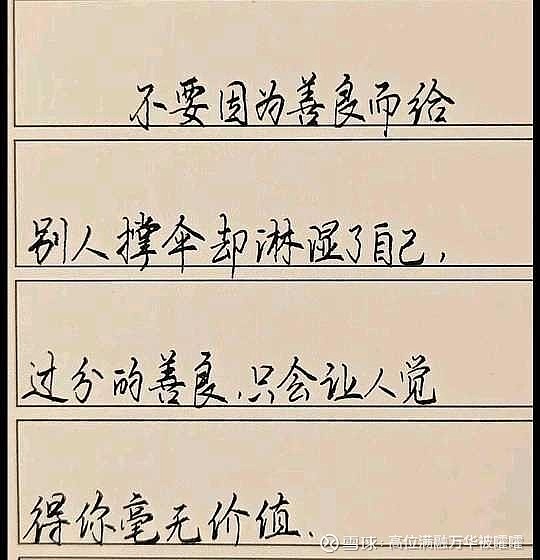 不要因为善良而给
别人撑伞却淋湿了自己,
过分的善良,只会让人觉
得你毫无价值、
雪球:高位满融万华被嚯嚯